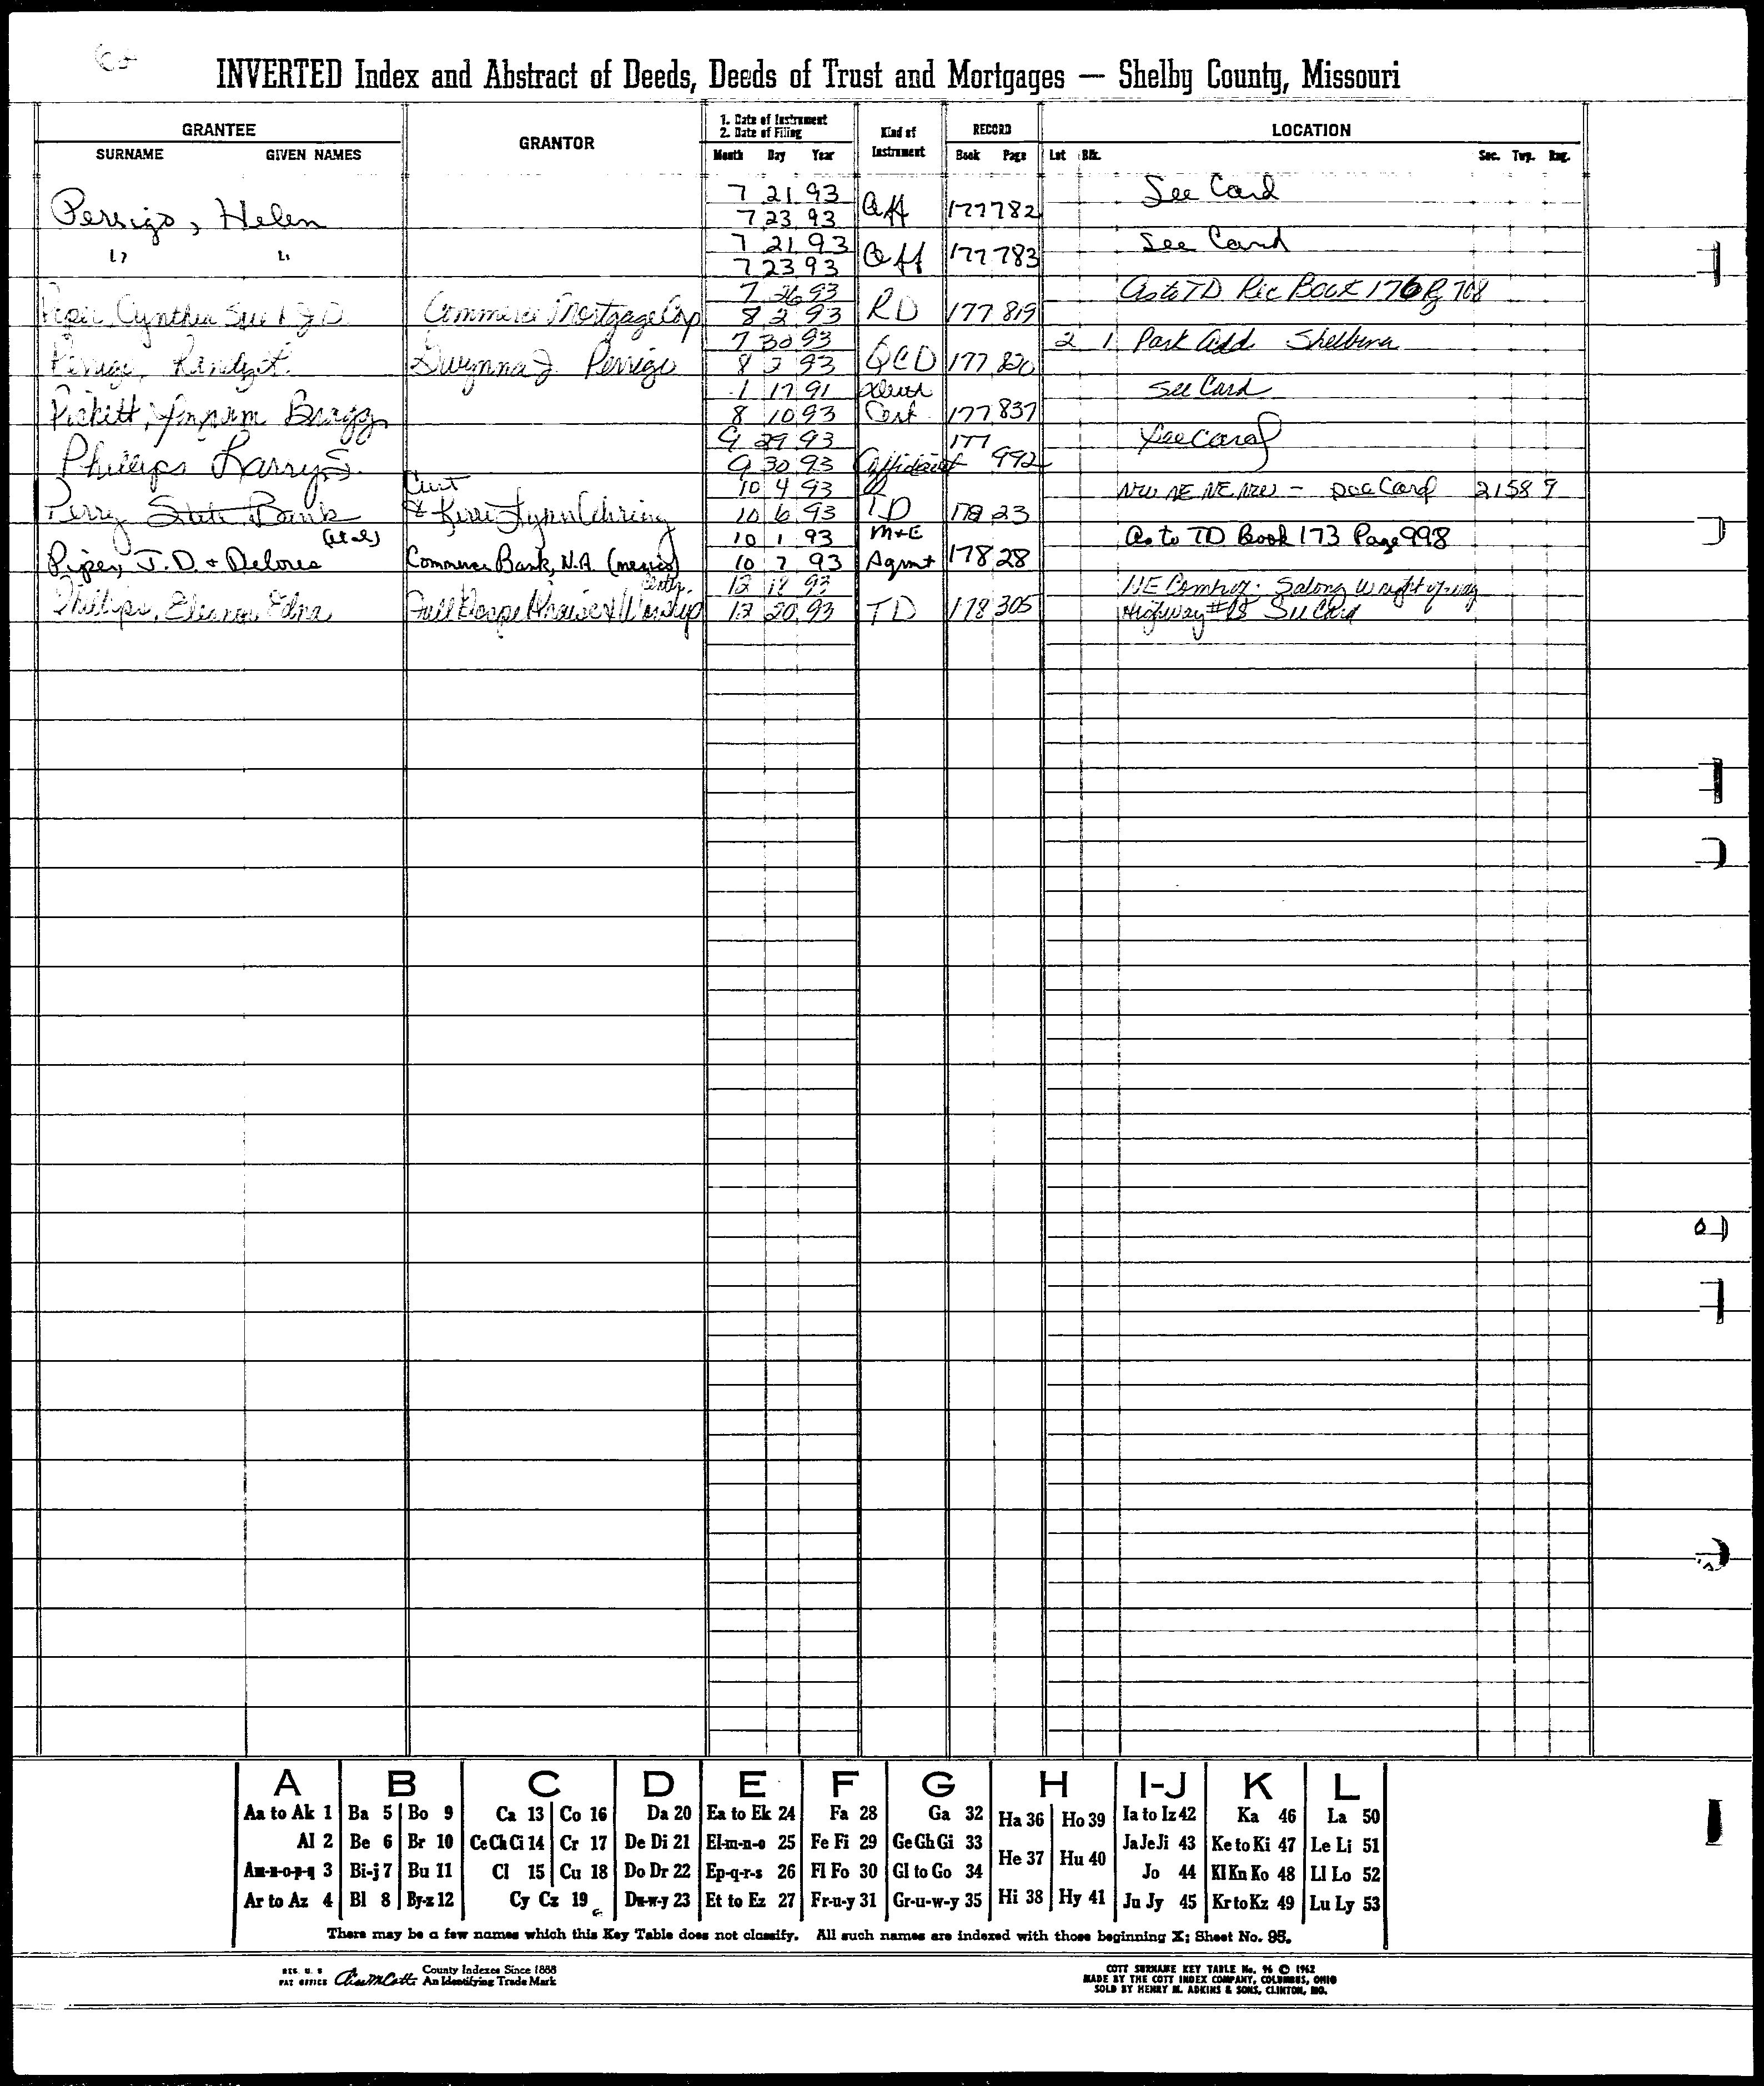 INVERTED Index and Abstract of Deeds, Deeds of Trust and Mortgages — Shelby County, Missouri
GRANTEE GRANTOR 1. Date of Instrument 2. Date of Filing Kind of Instrument RECORD LOCATION
SURNAME GIVEN NAMES Month Day Year Book Page Lot Blk. Sec. Twp. Rng.
7 21 93 See Card
Perrigo, Helen 7 23 93 Aff 177 782
7 21 93 See Card
" " 7 23 93 Aff 177 783
7 26 93 As to TD Rec Book 176 Pg 708
Cynthia Sue & J.D. Commerce Mortgage Corp 8 2 93 RD 177 819
7 30 93 2 1 Park Add Shelbina
Perrigo, Gwynna J Perrigo 8 2 93 QCD 177 820
1 17 91 Death See Card
Pickett, Braggs 8 10 93 Cert 177 837
9 29 93 177 See Card
Phillips Larry S. 9 30 93 Affidavit 992
Curt 10 4 93 NW NE NE NW - See Card 21 58 9
Perry State Bank & Kerri Lynn 10 6 93 TD 178 23
(et al) 10 1 93 M+E As to TD Book 173 Page 998
Piper, J.D. + Delores Commerce Bank, N.A. (Mexico) 10 7 93 Agmt 178 28
Center 12 93 NE Com : S along W right of way
Phillips, Eleanor Edna Full Gospel Praise & Worship 12 20 93 TD 178 305 Highway #15 See Card
A B C D E F G H I-J K L
Aa to Ak 1 Ba 5 Bo 9 Ca 13 Co 16 Da 20 Ea to Ek 24 Fa 28 Ga 32 Ha 36 Ho 39 Ia to Iz 42 Ka 46 La 50
Al 2 Be 6 Br 10 Ce Ch Ci 14 Cr 17 De Di 21 El-m-n-o 25 Fe Fi 29 Ge Gh Gi 33 He 37 Hu 40 Ja Je Ji 43 Ke to Ki 47 Le Li 51
Am-n-o-p-q 3 Bi-j 7 Bu 11 Cl 15 Cu 18 Do Dr 22 Ep-q-r-s 26 Fl Fo 30 Gl to Go 34 Jo 44 Kl Kn Ko 48 Ll Lo 52
Ar to Az 4 Bl 8 By-z 12 Cy Cz 19 Du-w-y 23 Et to Ez 27 Fr-u-y 31 Gr-u-w-y 35 Hi 38 Hy 41 Ju Jy 45 Kr to Kz 49 Lu Ly 53
There may be a few names which this Key Table does not classify. All such names are indexed with those beginning X; Sheet No. 95.
REG. U. S. PAT OFFICE County Indexes Since 1888 An Identifying Trade Mark
COTT SURNAME KEY TABLE No. 96 © 1962
MADE BY THE COTT INDEX COMPANY, COLUMBUS, OHIO
SOLD BY HENRY M. ADKINS & SONS, CLINTON, MO.